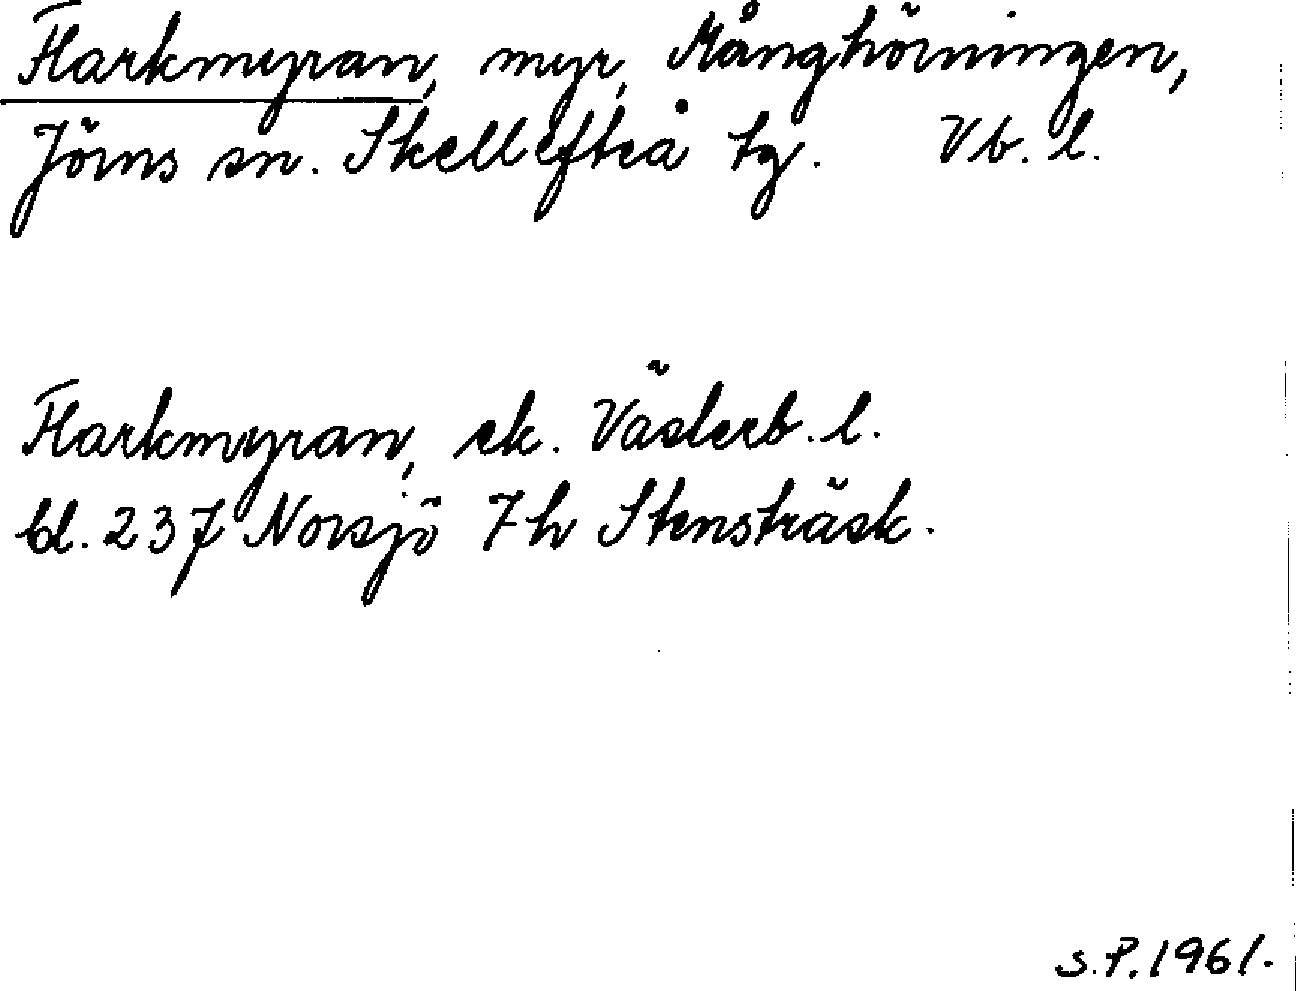 Flarkmyran, myr, Månghörningen,
Jörns sn. Skellefteå tg. Vb. l.
Flarkmyran, ek. Västerb. l.
bl. 237 Norsjö 7h Stensträsk.
S.P. 1961.